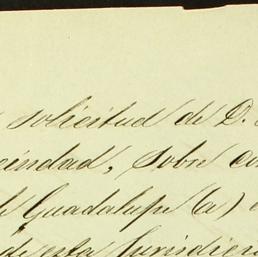 solicitud de D.
cindad, sobre co
Guadalupe (a)
de esta Jurisdicc